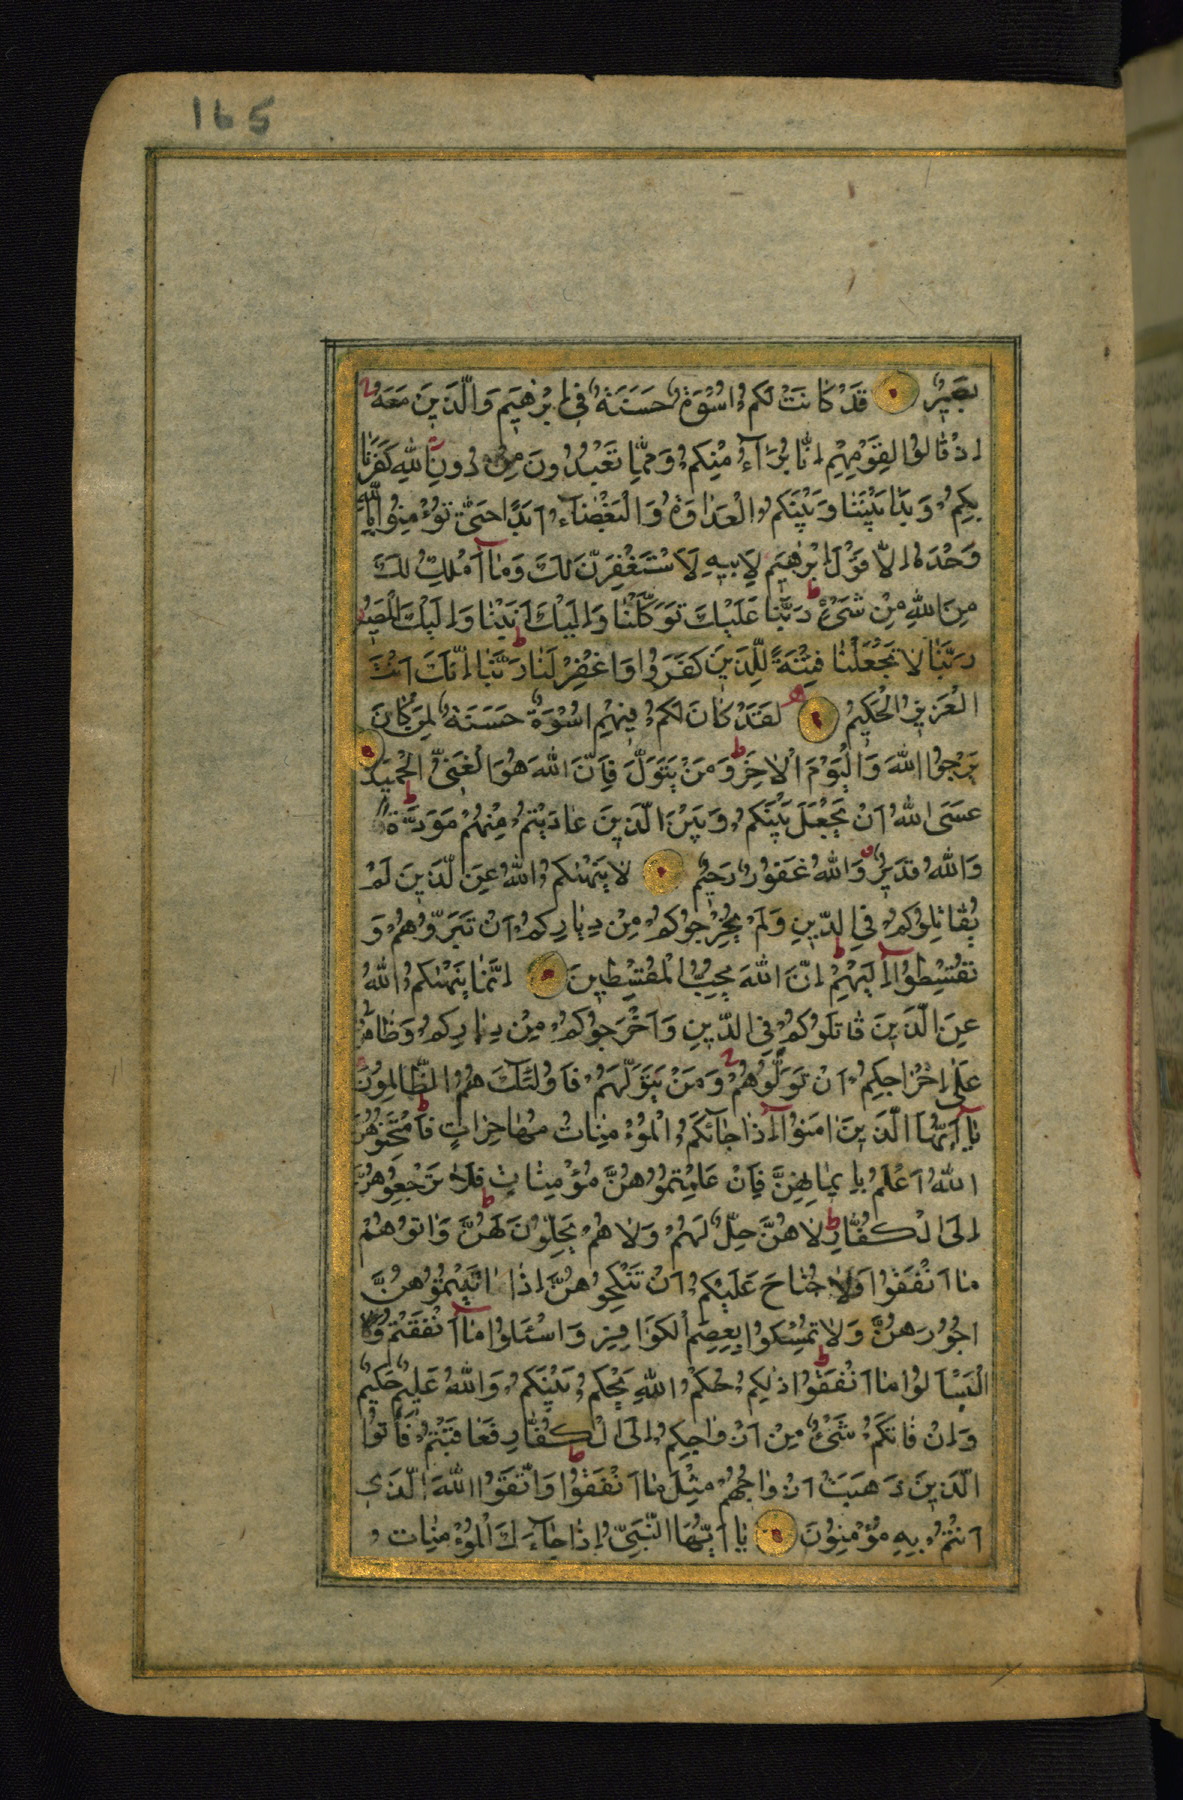 165
بَصٖيرٌ قَدْ كَانَتْ لَكُمْ اُسْوَةٌ حَسَنَةٌ فٖي اِبْرٰهٖيمَ وَالَّذٖينَ مَعَهُ
اِذْ قَالُوا لِقَوْمِهِمْ اِنَّا بُرَآءُ مِنْكُمْ وَمِمَّا تَعْبُدُونَ مِنْ دُونِ اللّٰهِ كَفَرْنَا
بِكُمْ وَبَدَا بَيْنَنَا وَبَيْنَكُمُ الْعَدَاوَةُ وَالْبَغْضَآءُ اَبَدًا حَتّٰى تُؤْمِنُوا بِاللّٰهِ
وَحْدَهُ اِلَّا قَوْلَ اِبْرٰهٖيمَ لِاَبٖيهِ لَاَسْتَغْفِرَنَّ لَكَ وَمَآ اَمْلِكُ لَكَ
مِنَ اللّٰهِ مِنْ شَيْءٍ رَبَّنَا عَلَيْكَ تَوَكَّلْنَا وَاِلَيْكَ اَنَبْنَا وَاِلَيْكَ الْمَصٖيرُ
رَبَّنَا لَا تَجْعَلْنَا فِتْنَةً لِلَّذٖينَ كَفَرُوا وَاغْفِرْ لَنَا رَبَّنَا اِنَّكَ اَنْتَ
الْعَزٖيزُ الْحَكٖيمُ لَقَدْ كَانَ لَكُمْ فٖيهِمْ اُسْوَةٌ حَسَنَةٌ لِمَنْ كَانَ
يَرْجُوا اللّٰهَ وَالْيَوْمَ الْاٰخِرَ وَمَنْ يَتَوَلَّ فَاِنَّ اللّٰهَ هُوَ الْغَنِيُّ الْحَمٖيدُ
عَسَى اللّٰهُ اَنْ يَجْعَلَ بَيْنَكُمْ وَبَيْنَ الَّذٖينَ عَادَيْتُمْ مِنْهُمْ مَوَدَّةً
وَاللّٰهُ قَدٖيرٌ وَاللّٰهُ غَفُورٌ رَحٖيمٌ لَا يَنْهٰىكُمُ اللّٰهُ عَنِ الَّذٖينَ لَمْ
يُقَاتِلُوكُمْ فِي الدّٖينِ وَلَمْ يُخْرِجُوكُمْ مِنْ دِيَارِكُمْ اَنْ تَبَرُّوهُمْ وَ
تُقْسِطُوٓا اِلَيْهِمْ اِنَّ اللّٰهَ يُحِبُّ الْمُقْسِطٖينَ اِنَّمَا يَنْهٰىكُمُ اللّٰهُ
عَنِ الَّذٖينَ قَاتَلُوكُمْ فِي الدّٖينِ وَاَخْرَجُوكُمْ مِنْ دِيَارِكُمْ وَظَاهَرُوا
عَلٰى اِخْرَاجِكُمْ اَنْ تَوَلَّوْهُمْ وَمَنْ يَتَوَلَّهُمْ فَاُولٰٓئِكَ هُمُ الظَّالِمُونَ
يَآ اَيُّهَا الَّذٖينَ اٰمَنُوٓا اِذَا جَآئَكُمُ الْمُؤْمِنَاتُ مُهَاجِرَاتٍ فَامْتَحِنُوهُنَّ
اللّٰهُ اَعْلَمُ بِاٖيمَانِهِنَّ فَاِنْ عَلِمْتُمُوهُنَّ مُؤْمِنَاتٍ فَلَا تَرْجِعُوهُنَّ
اِلَى الْكُفَّارِ لَا هُنَّ حِلٌّ لَهُمْ وَلَا هُمْ يَحِلُّونَ لَهُنَّ وَاٰتُوهُمْ
مَا اَنْفَقُوا وَلَا جُنَاحَ عَلَيْكُمْ اَنْ تَنْكِحُوهُنَّ اِذَا اٰتَيْتُمُوهُنَّ
اُجُورَهُنَّ وَلَا تُمْسِكُوا بِعِصَمِ الْكَوَافِرِ وَاسْئَلُوا مَآ اَنْفَقْتُمْ وَ
الْيَسْاَلُوا مَا اَنْفَقُوا ذٰلِكُمْ حُكْمُ اللّٰهِ يَحْكُمُ بَيْنَكُمْ وَاللّٰهُ عَلٖيمٌ حَكٖيمٌ
وَاِنْ فَاتَكُمْ شَيْءٌ مِنْ اَزْوَاجِكُمْ اِلَى الْكُفَّارِ فَعَاقَبْتُمْ فَاٰتُوا
الَّذٖينَ ذَهَبَتْ اَزْوَاجُهُمْ مِثْلَ مَا اَنْفَقُوا وَاتَّقُوا اللّٰهَ الَّذٖي
اَنْتُمْ بِهِ مُؤْمِنُونَ يَا اَيُّهَا النَّبِيُّ اِذَا جَآءَكَ الْمُؤْمِنَاتُ